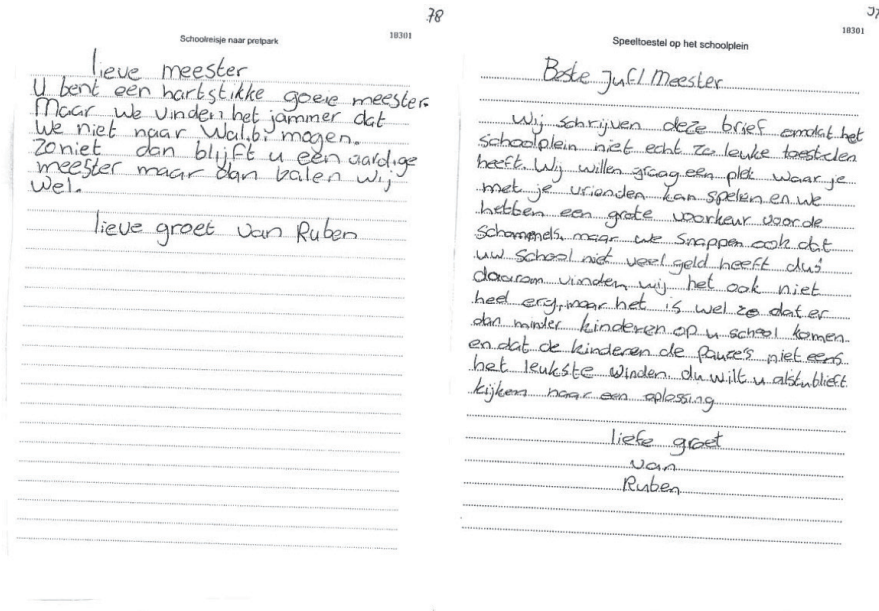 78
18301
Schoolreisje naar pretpark
lieve meester
U bent een hartstikke goeie meester.
Maar we vinden het jammer dat
we niet naar Walibi mogen.
zoniet dan blijft u een aardige
meester maar dan balen wij
wel.
lieve groet van Ruben
18301
Speeltoestel op het schoolplein
Beste Juf/Meester
Wij schrijven deze brief omdat het
schoolplein niet echt zo leuke toestelen
heeft. Wij willen graag een plek waar je
met je vrienden kan spelen en we
hebben een grote voorkeur voor de
maar we snappen ook dat
uw school niet veel geld heeft dus
daarom vinden wij het ook niet
heel erg, maar het is wel zo dat er
dan minder kinderen op u school komen
en dat de kinderen de pauze's niet eens
het leukste vinden du wilt u alstublieft
kijken naar een oplossing
liefe groet
van
Ruben